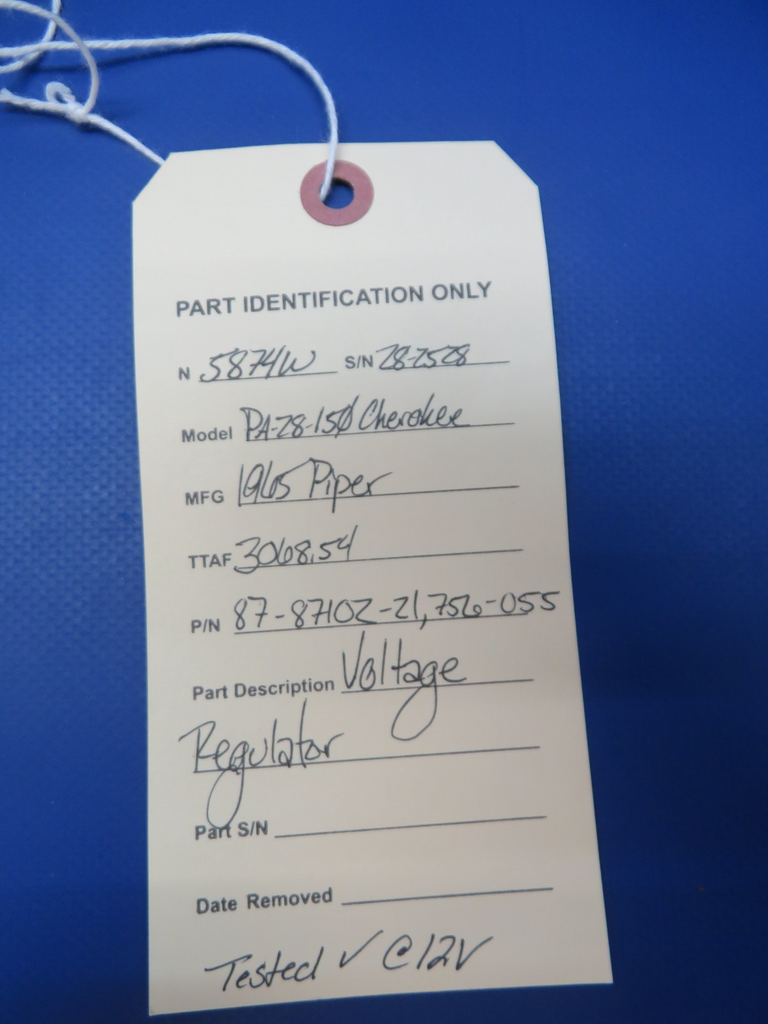 PART IDENTIFICATION ONLY
N 5874W S/N 28-2528
Model PA-28-150 Cherokee
MFG 1965 Piper
TTAF 3068.54
P/N 87-87102-21, 756-055
Part Description Voltage
Regulator
Part S/N
Date Removed
Tested ✓ @ 12V